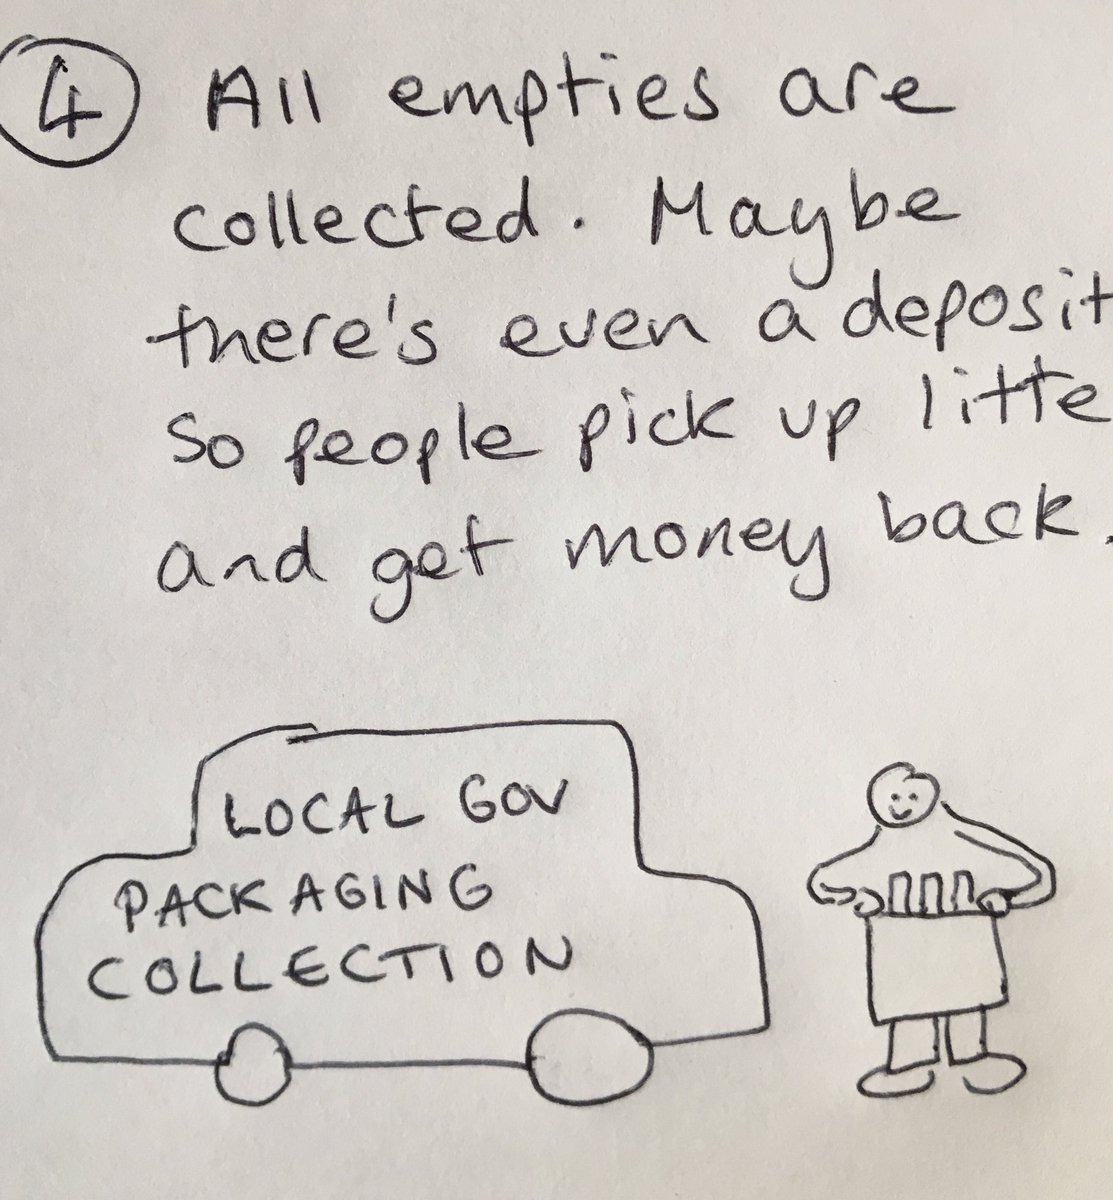 4 All empties are
collected. Maybe
there's even a deposit
So people pick up litte
and get money back.
LOCAL GOV
PACKAGING
COLLECTION